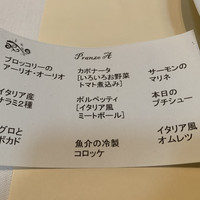 Pranzo A
ブロッコリーの
アーリオ・オーリオ
カポナータ
[いろいろお野菜
トマト煮込み]
サーモンの
マリネ
イタリア産
サラミ2種
ポルペッティ
[イタリア風
ミートボール]
本日の
プチシュー
グロと
ボカド
魚介の冷製
コロッケ
イタリア風
オムレツ